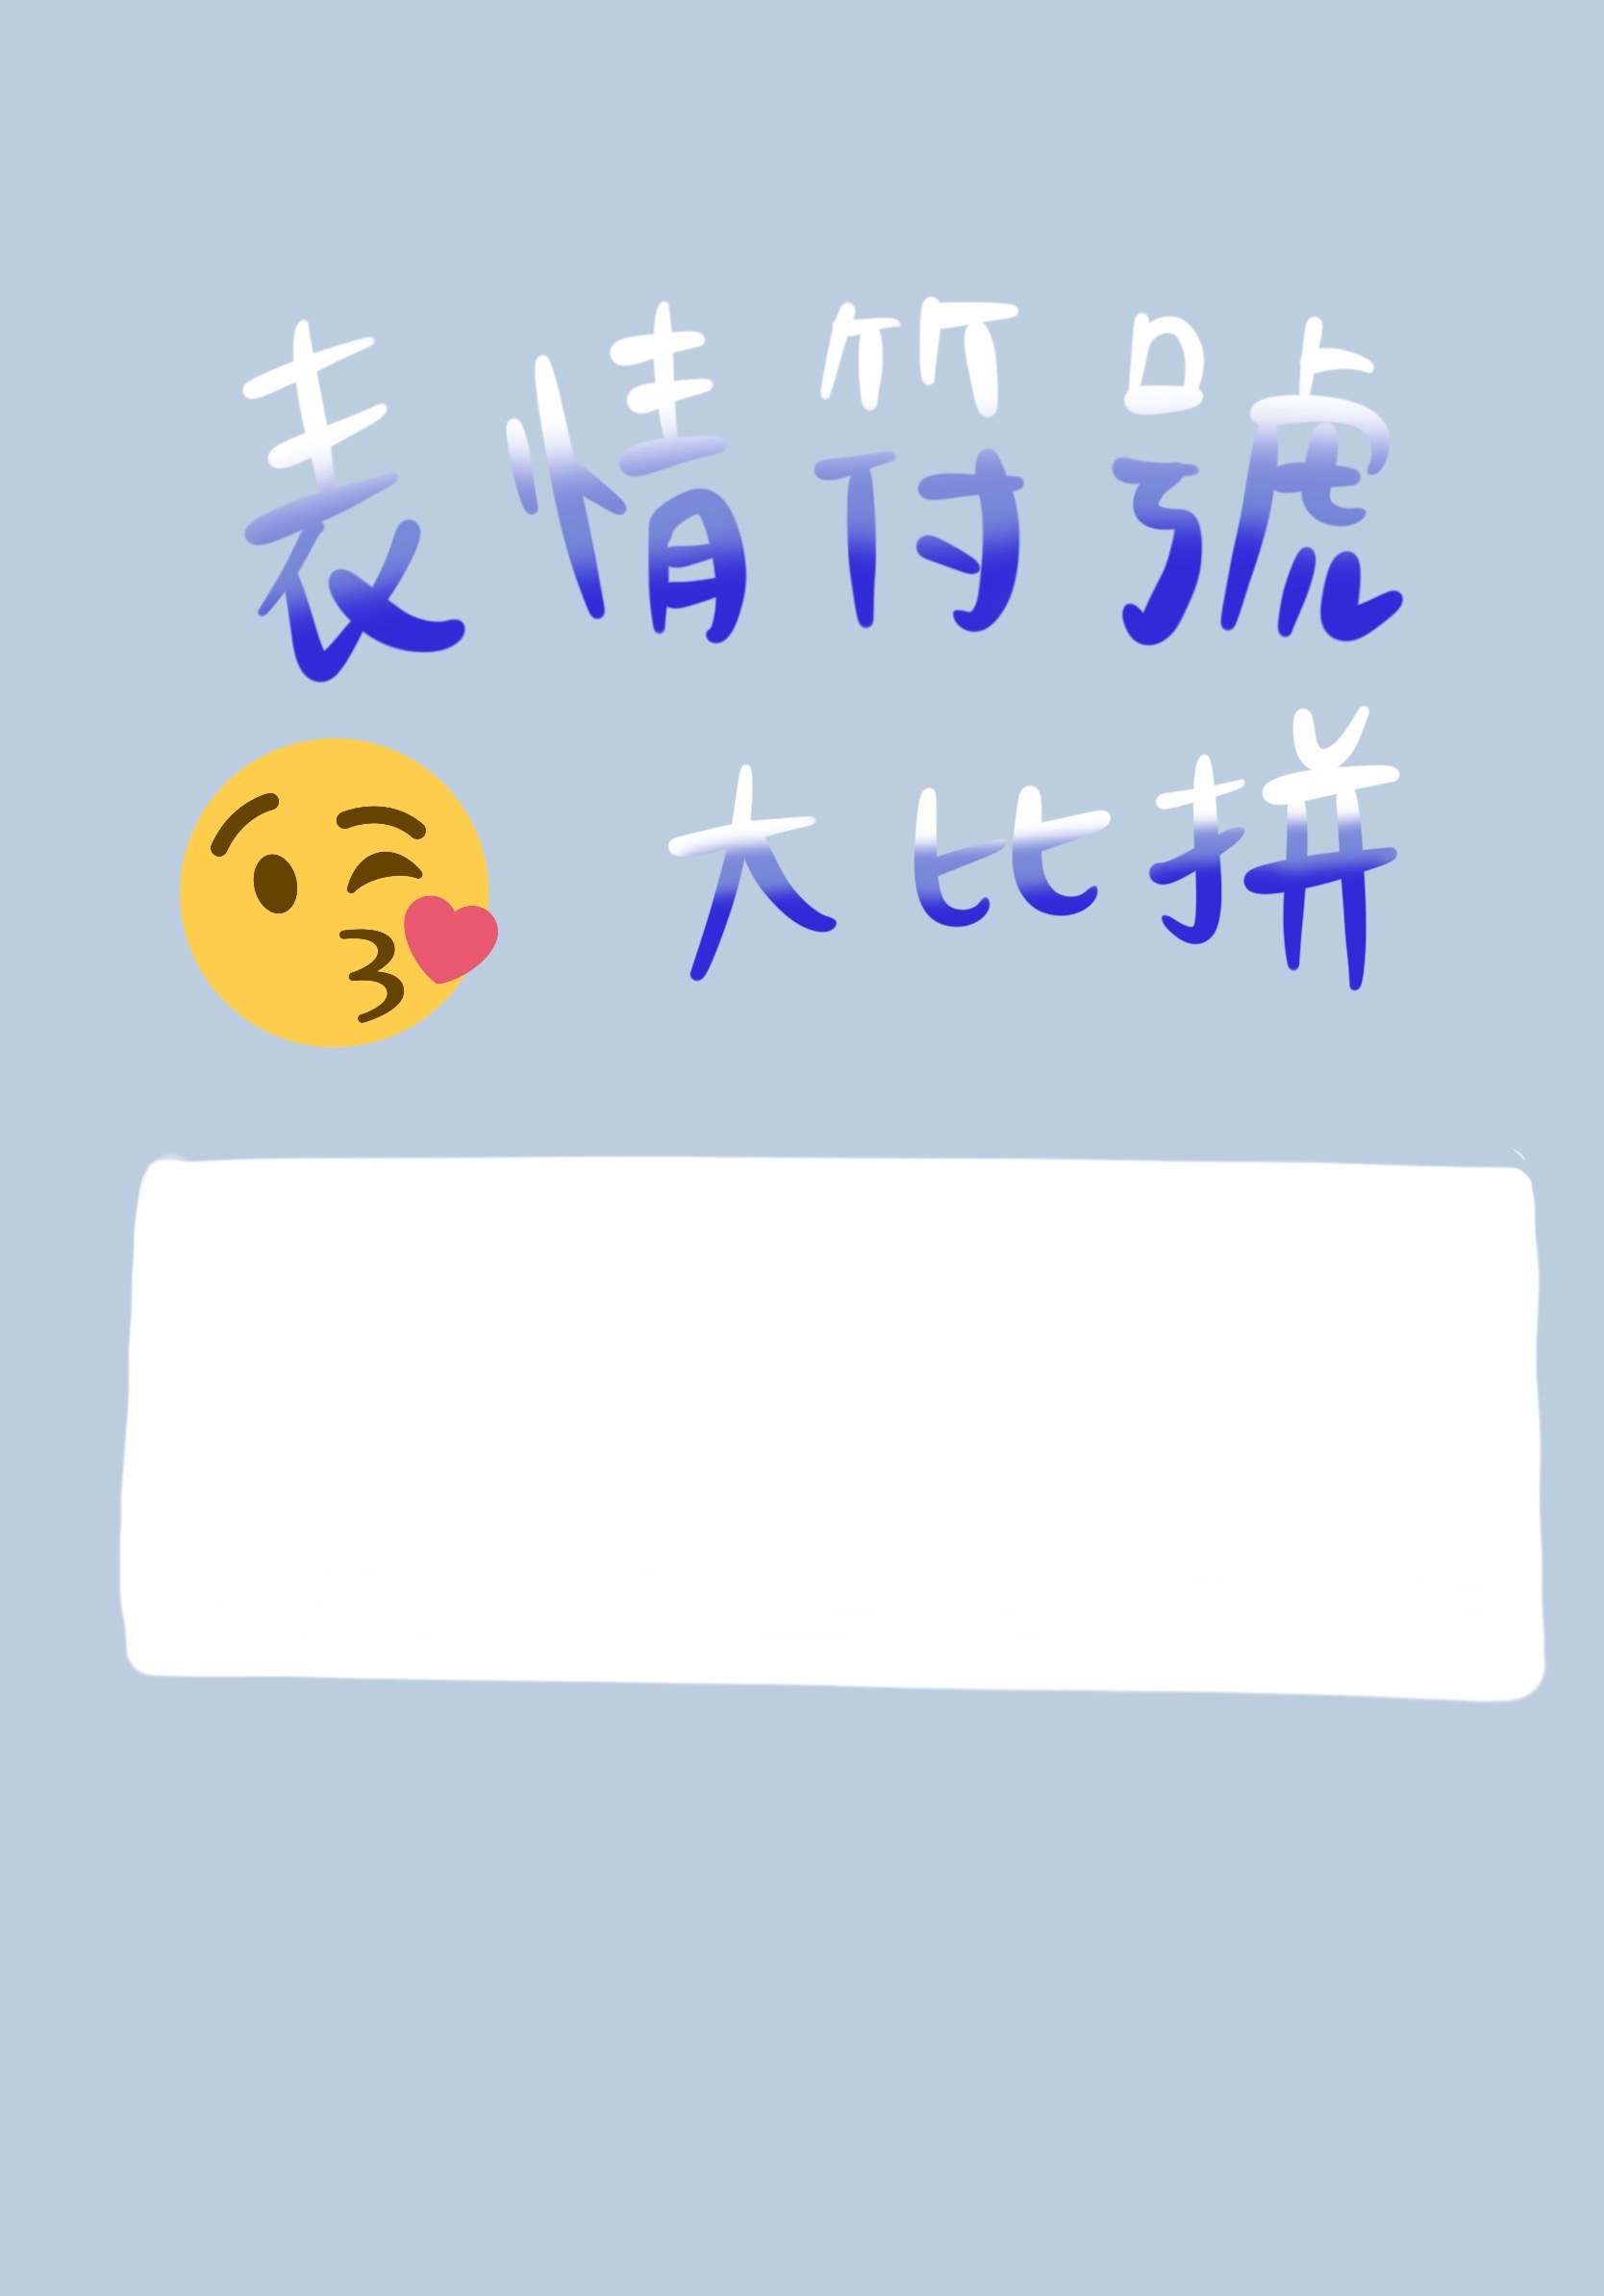 表情符號
大比拼